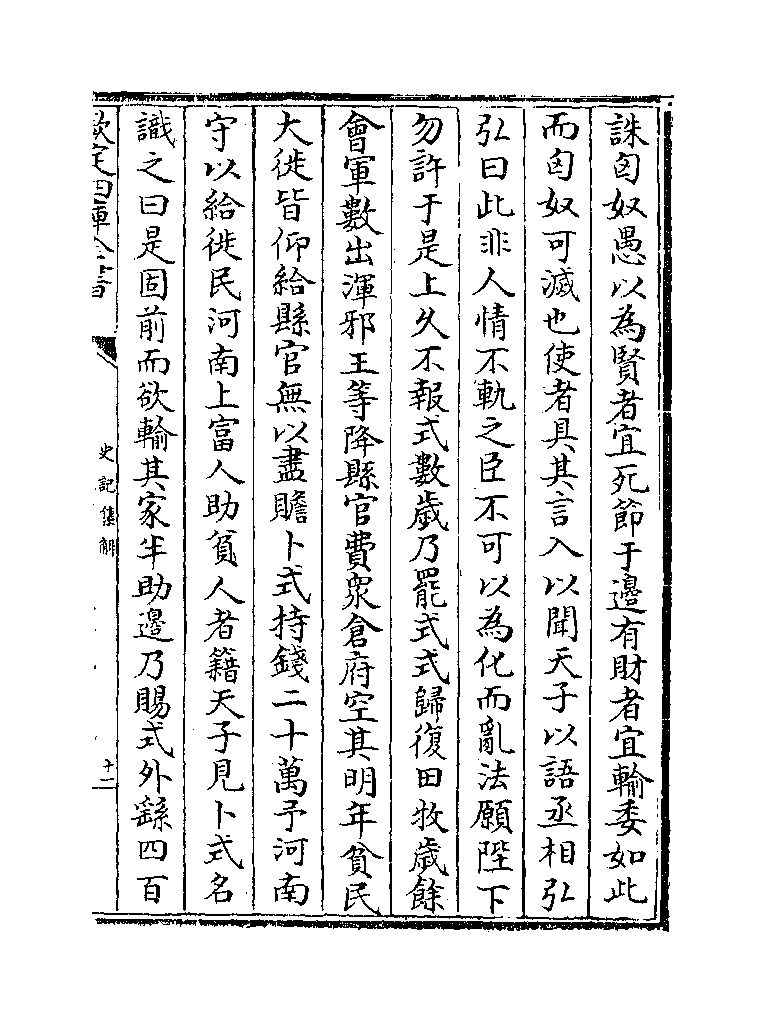 誅匈奴愚以為賢者宜死節于邊有財者宜輸委如此
而匈奴可滅也使者具其言入以聞天子以語丞相弘
弘曰此非人情不軌之臣不可以為化而亂法願陛下
勿許于是上久不報式數歲乃罷式式歸復田牧歲餘
會軍數出渾邪王等降縣官費衆倉府空其明年貧民
大徙皆仰給縣官無以盡贍卜式持錢二十萬予河南
守以給徙民河南上富人助貧人者籍天子見卜式名
識之曰是固前而欲輸其家半助邊乃賜式外繇四百
欽定四庫全書
史記集解
十二